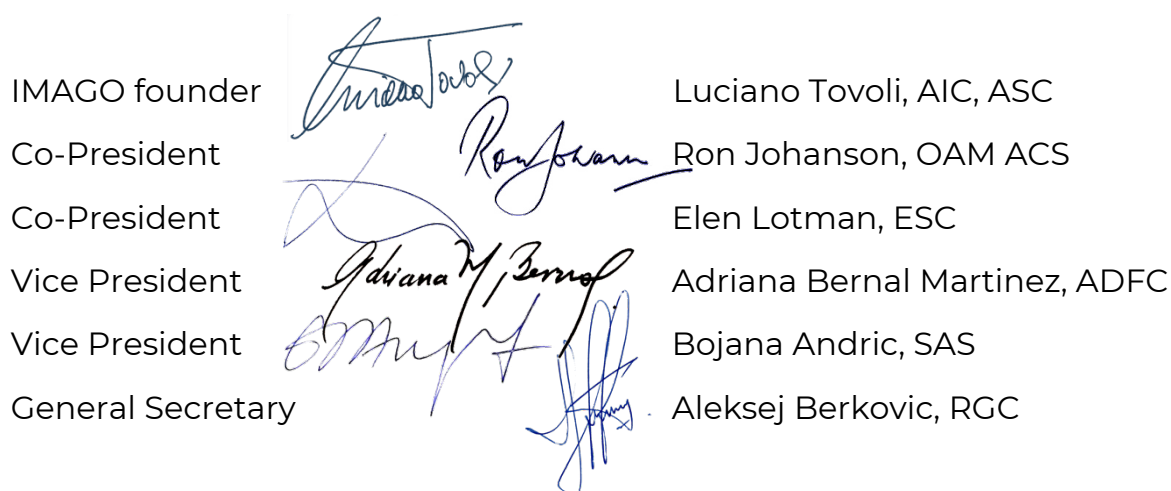 IMAGO founder Luciano Tovoli Luciano Tovoli, AIC, ASC
Co-President Ron Johanson Ron Johanson, OAM ACS
Co-President Elen Lotman, ESC
Vice President Adriana M Bernal Adriana Bernal Martinez, ADFC
Vice President Bojana Andric, SAS
General Secretary Aleksej Berkovic, RGC